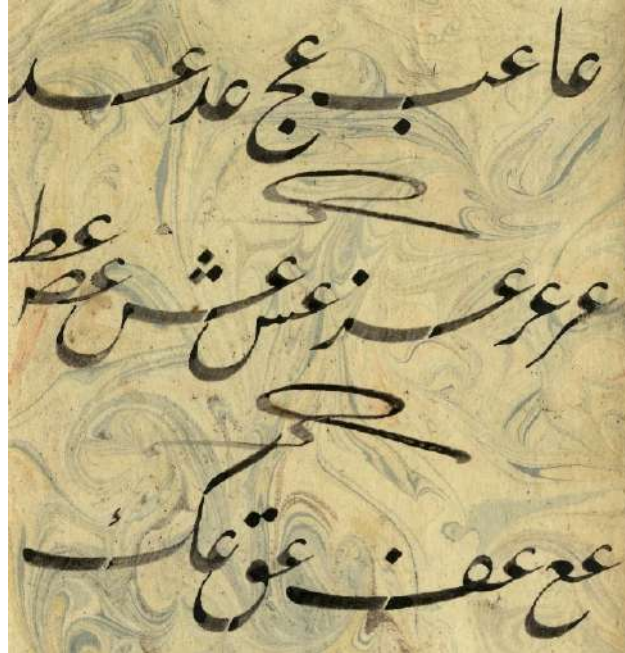 عا عب عج عد عد
عر عر عز عس عش عص عط
عع عف عق عک